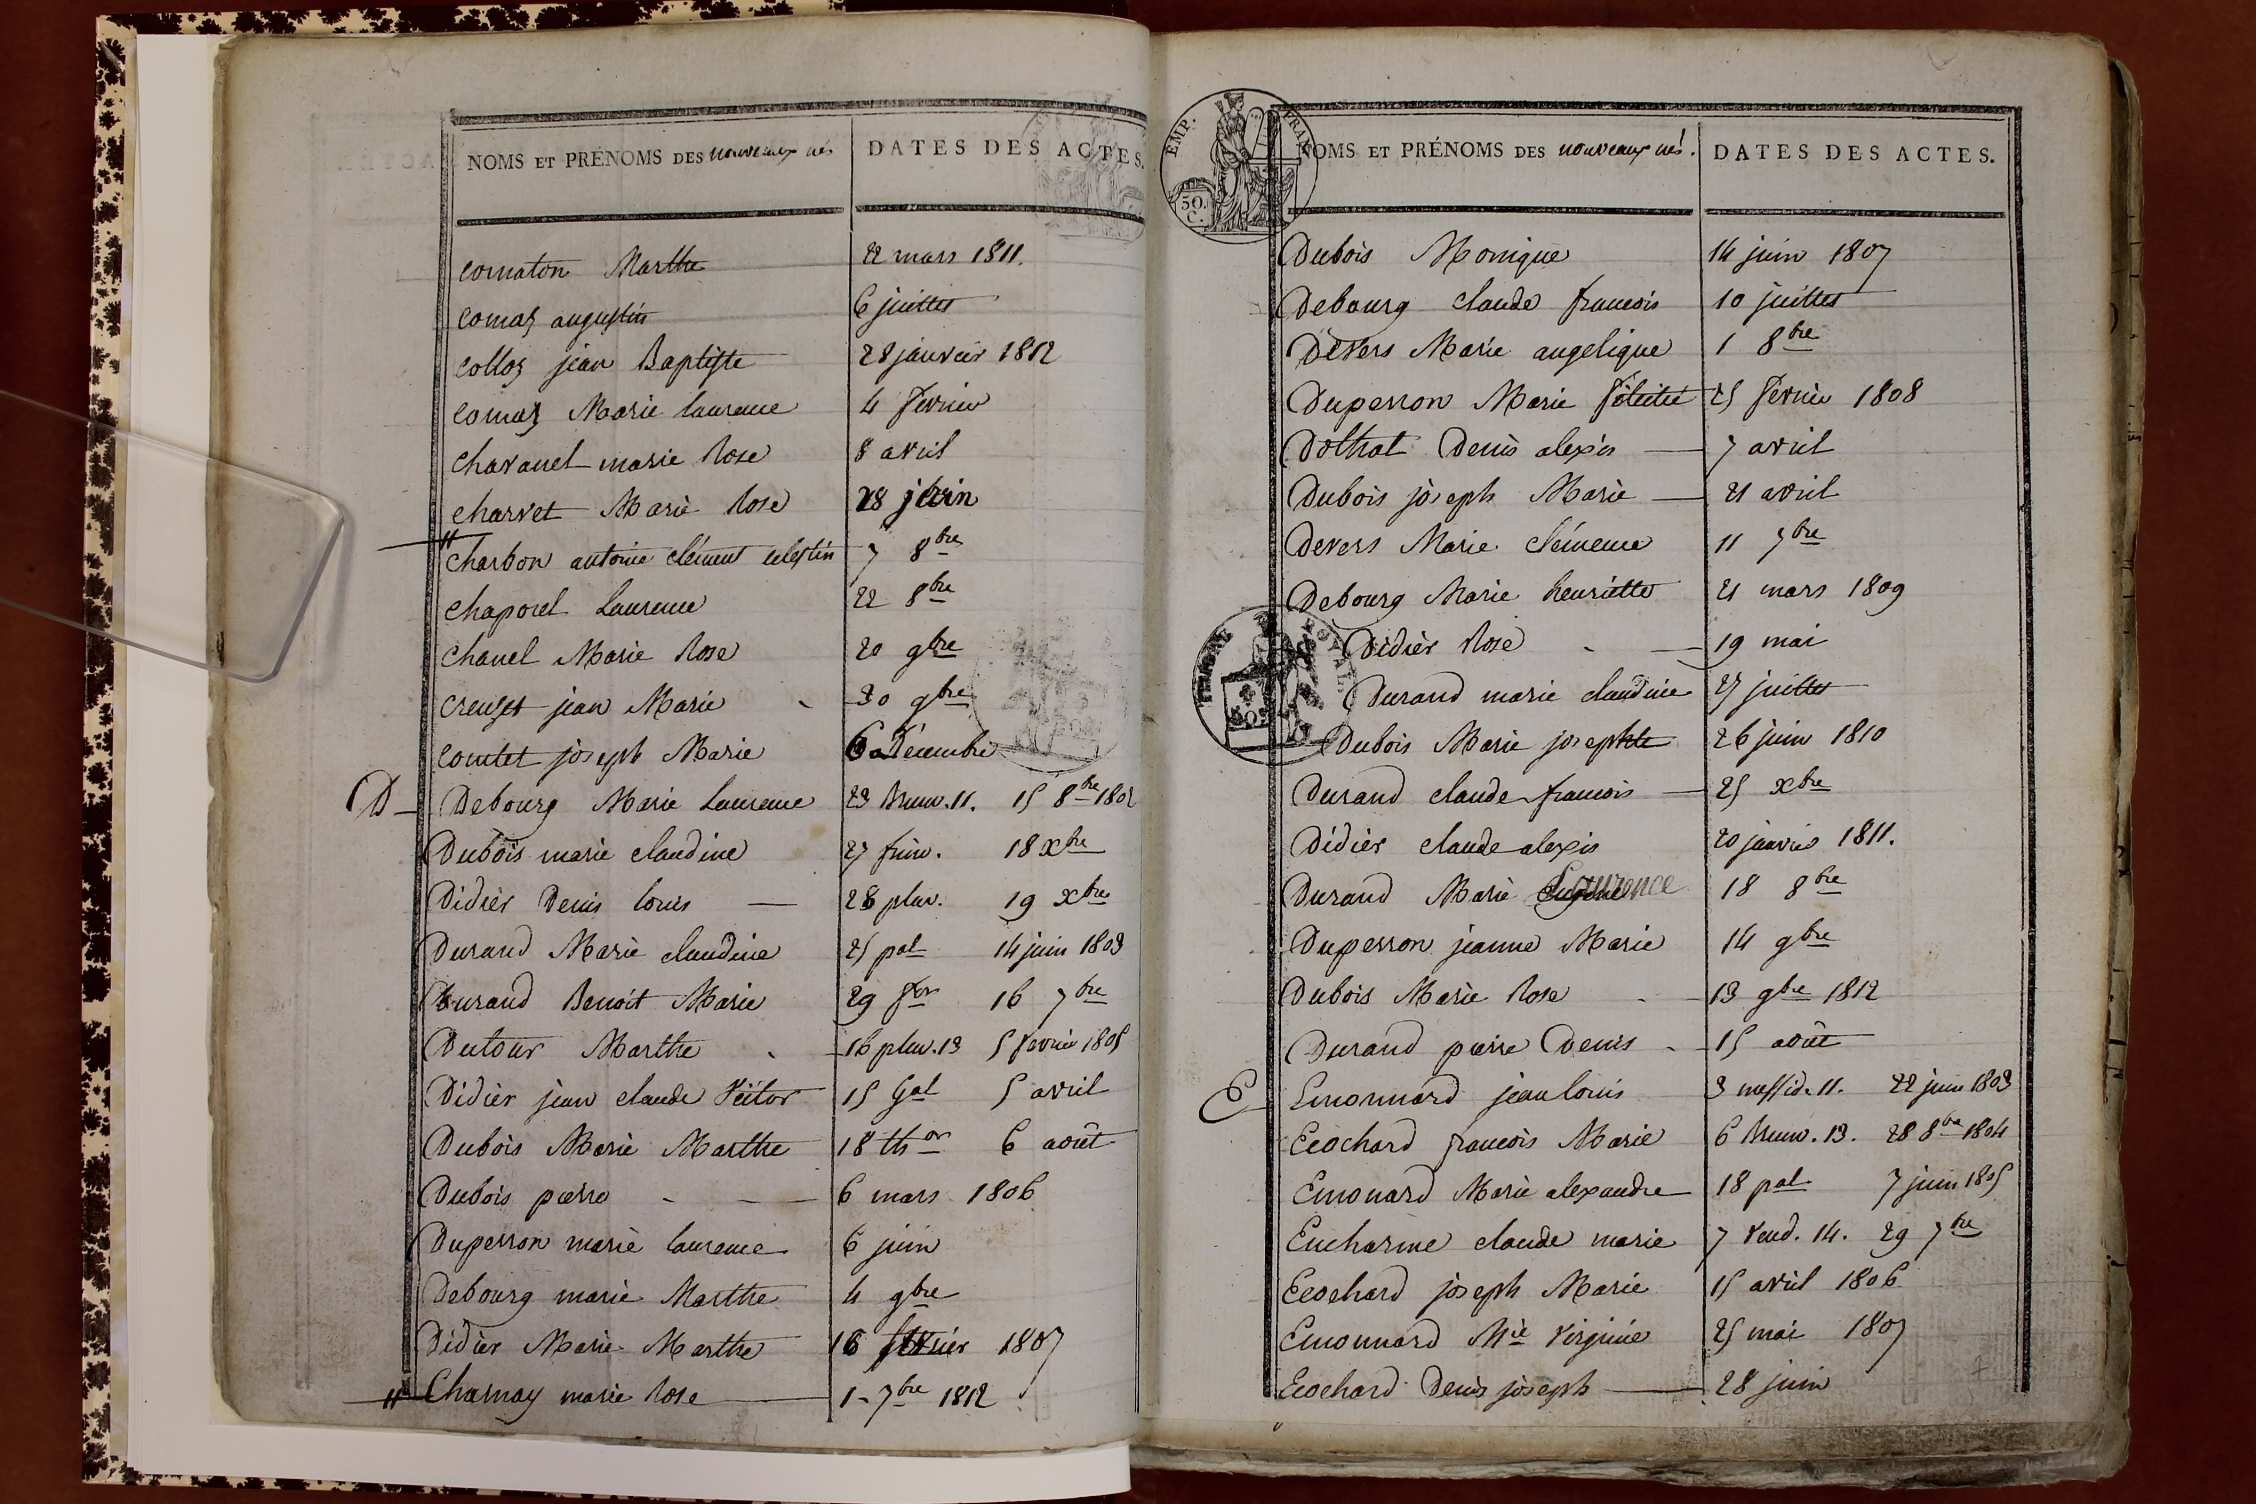 NOMS ET PRÉNOMS DES nouveaux nés DATES DES ACTES.
comaton Marthe 22 mars 1811.
comaz augustin 6 juillet
colloz jean Baptiste 28 janvier 1812
comaz Marie laurence 4 fevrier
chavanel marie Rose 8 avril
charvet Marie Rose 28 juin
charbon antoine clément celestin 7 8bre
chaporel Laurence 22 8bre
chanel Marie Rose 20 9bre
creuzet jean Marie 30 9bre
comtet joseph Marie 6 Décembre
D Debourg Marie Laurence 23 Brum. 11. 15 8bre 1802
Dubois marie claudine 27 frim. 18 Xbre
Didier Denis louis 28 pluv. 19 Xbre
Durand Marie claudine 25 pal 14 juin 1803
Durand Benoit Marie 29 for 16 7bre
Dutour Marthe 16 pluv. 13 5 fevrier 1805
Didier jean claude Victor 15 Gal 5 avril
Dubois Marie Marthe 18 thor 6 août
Dubois pierre 6 mars 1806
Duperron marie laurence 6 juin
Debourg marie Marthe 4 9bre
Didier Marie Marthe 16 fevrier 1807
Charnay marie Rose 1 7bre 1812
EMP. FRAN
50. C.
NOMS ET PRÉNOMS DES nouveaux nés. DATES DES ACTES.
Dubois Monique 14 juin 1807
Debourg claude francois 10 juillet
Devers Marie angelique 1 8bre
Duperron Marie félicité 25 fevrier 1808
Dothat Denis alexis 7 avril
Dubois joseph Marie 21 avril
Devers Marie clémence 11 7bre
Debourg Marie henriette 21 mars 1809
TIMBRE ROYAL
Didier Rose 19 mai
Durand marie claudine 27 juillet
Dubois Marie josephte 26 juin 1810
Durand claude francois 25 Xbre
Didier claude alexis 20 janvier 1811.
Durand Marie Laurence 18 8bre
Duperron jeanne Marie 14 9bre
Dubois Marie Rose 13 9bre 1812
Durand pierre Denis 15 août
E Emonnard jean louis 3 messid. 11. 22 juin 1803
Ecochard francois Marie 6 Brum. 13. 28 8bre 1804
Emonard Marie alexandre 18 pal 7 juin 1805
Eucharine claude marie 7 Vend. 14. 29 7bre
Ecochard joseph Marie 15 avril 1806
Emonnard Mie Virginie 25 mai 1807
Ecochard Denis joseph 28 juin